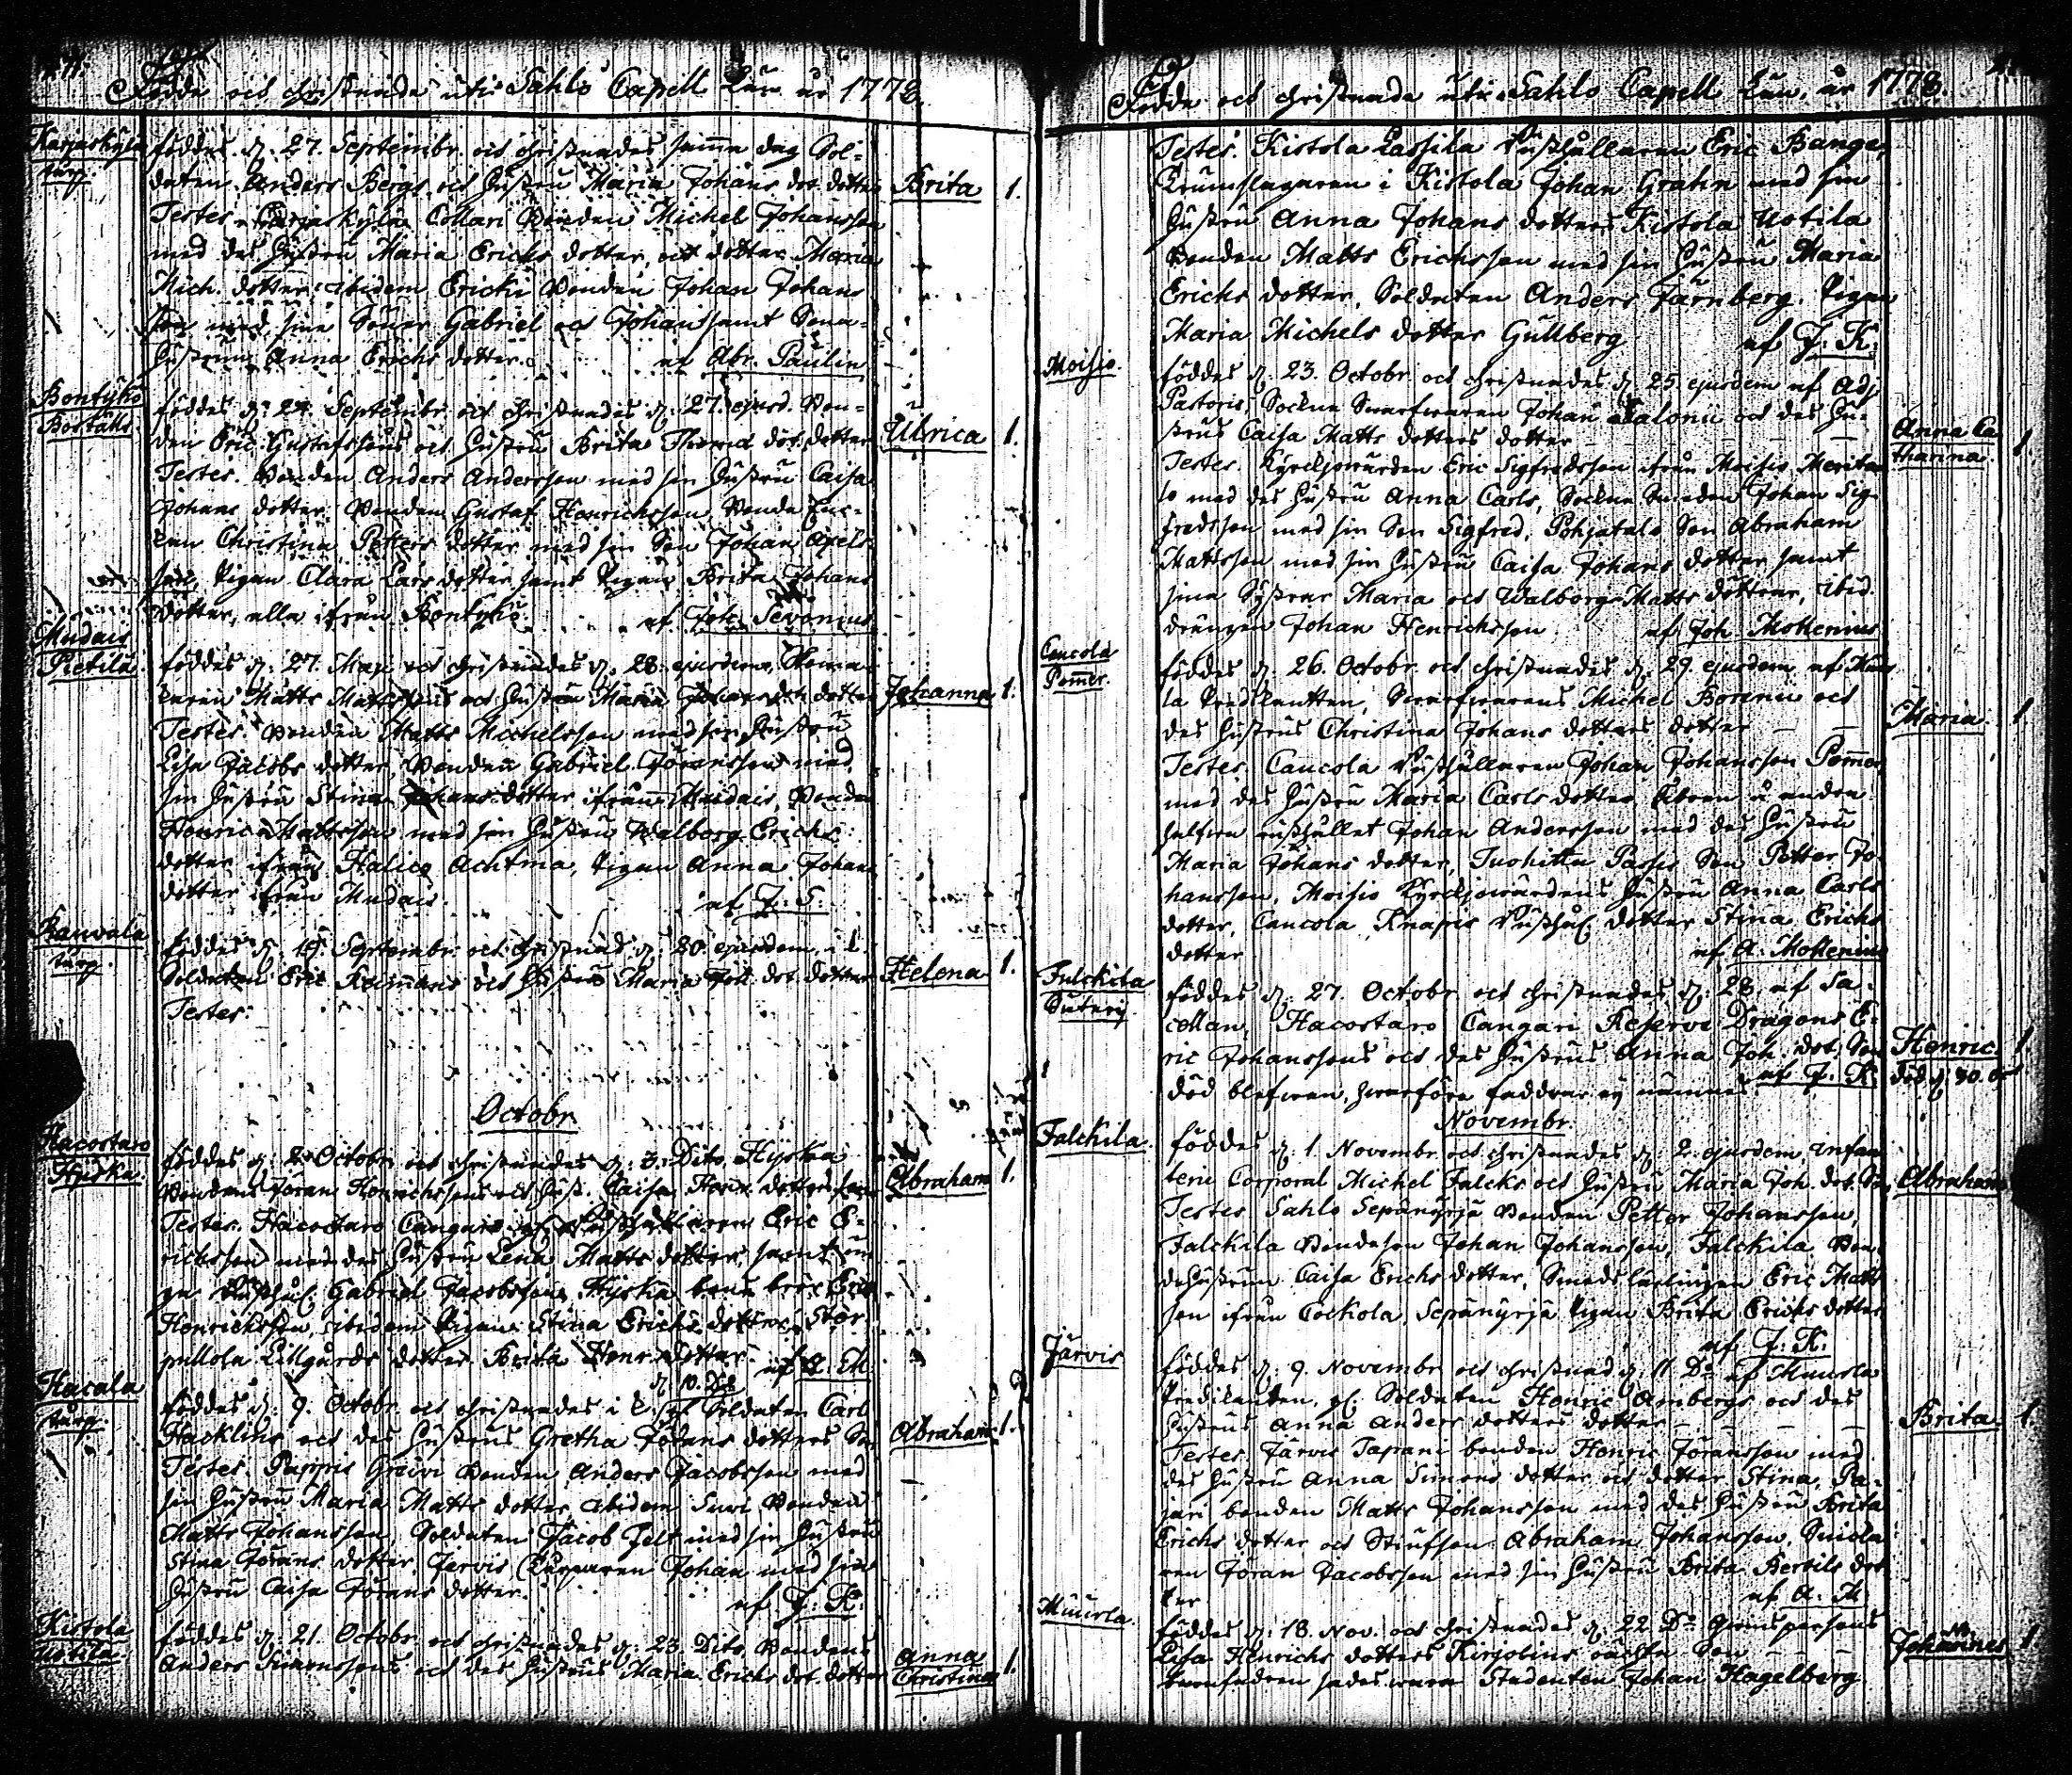 Födde och christnade uti Sahlo Capell Lun år 1778.
Karjaskylä
torp.
föddes d. 27. Septembr. och christnades samma dag Sol-
daten Anders Bergs och hustru Maria Johans dot. dotter
Brita 1.
Testes. Karjaskylä Collari Bonden Michel Johansson
med des hustru Maria Erichs dotter, och dotter Maria
Mich. dotter, ibidem Ericki Bonden Johan Johans
son med sine Söner Gabriel och Johan samt Sona-
hustrun Anna Erichs dotter. af Abr. Paulin
Bontykö
Boställe.
föddes d. 24. Septembr. och christnades d. 27. ejusd. Bon-
den Eric Gustafssons och hustru Brita Thomæ dot. dotter
Ulrica 1.
Testes. Bonden Anders Andersson med sin hustru Caisa
Johans dotter, Bonden Gustaf Henrichsson Bonde En-
kan Christina Petters dotter med sin Son Johan Axels-
son, Pigan Clara Lars dotter samt Pigan Brita Johans
dotter, alla ifrån Bontykö. af Joh. Sevonius
Mudais
Pietilä
föddes d. 27. Maji och christnades d. 28. ejusdem,
Matts Mattssons och hustru Maria dotter
Johanna 1.
Testes. Bonden Matts Michelsson med sin hustru
Lisa Jacobs dotter, Bonden Gabriel Jöransson med
sin hustru Stina Johans dotter ifrån Mudais, Bonden
Henric Mattsson med sin hustru Walborg Erichs
dotter ifrån Halico Achtma, Pigan Anna Johans
dotter ifrån Mudais. af J. S.
Rauvola
torp.
föddes d. 19. Septembr. och christnad d. 20. ejusdem
Soldaten Eric Reimans och hustrus Maria Joh. dot. dotter
Helena 1.
Testes.
Octobr.
Hacostaro
Hyska.
föddes d. 2. Octobr. och christnades d. 3. Dito Hyska
Bondens Jöran Henrichssons och hust. Caisa Henr. dotters son
Abraham 1.
Testes. Hacostaro Cangari Rusthållaren Eric E-
richsson med des hustru Lena Matts dotter, samt
Rusthåll. Gabriel Jacobsson, Hyska
Henrichsson, ibidem Pigan Stina Erichs dotter, Stor
pullola Lillgårds dotter Brita Henr. dotter. af A. M.
Hacala
torp.
d. 10. Do
föddes d. 9. Octobr. och christnades Soldaten Carl
Hacklins och des hustrus Gretha Jörans dotters Son
Abraham 1.
Testes. Pappis Greivi Bonden Anders Jacobsson med
sin hustru Maria Matts dotter, ibidem Suvi Bonden
Matts Johansson, Soldaten Jacob Felt med sin hustru
Stina Jörans dotter, Jervis Torparen Johan med sin
hustru Caisa Jörans dotter. af J. K.
Kistola
Uotila
föddes d. 21. Octobr. och christnades d. 23. Dito, Bondens
Anders Simonssons och des hustrus Maria Erichs dot. dotter
Anna
Christina 1.
Födde och christnade uti Sahlo Capell Lun, år 1778.
Testes. Kistola Lassila Rusthållaren Eric Bange,
Trumslagaren i Kistola Johan Grahn med sin
hustru Anna Johans dotter, Kistola Uotila
Bonden Matts Erichsson med sin hustru Maria
Erichs dotter, Soldaten Anders Järnberg. Pigan
Maria Michels dotter Gullberg af J. K.
Moisio.
föddes d. 23. Octobr. och christnades d. 25. ejusdem af Adj.
Pastoris, Sockne Swarfwaren Johan Salonii och des hu-
strus Caisa Matts dotters dotter
Anna Ca
tharina. 1.
Testes. Kyrckjowärden Eric Sigfredsson ifrån Moisio Merita
lo med des hustru Anna Carls, Sockne Smeden Johan Sig-
fredsson med sin Son Sigfred, Pohjatalo Son Abraham
Mattsson med sin hustru Caisa Johans dotter samt
sina Systrar Maria och Walborg Matts döttrar, ibid.
drängen Johan Henrichsson af Joh. Mollenius
Caucola
Pomer.
föddes d. 26. Octobr. och christnades d. 29. ejusdem af Muur
la Predikanten, Swarfwarens Michel Borenii och
des hustrus Christina Johans dotters dotter
Maria 1.
Testes. Caucola Rusthållaren Johan Johansson Pomer,
med des hustru Maria Carls dotter, Åboen å andra
halfwa rusthållet Johan Andersson med des hustru
Maria Johans dotter, Tuohittu Passis Son Petter Jo-
hansson, Moisio Kyrckjowärdens hustru Anna Carls
dotter, Caucola Knapis Rusthål. dotter Stina Erichs
dotter af A. Mollenius
Fulckila
Suteri
föddes d. 27. Octobr. och christnades d. 28. af Sa-
cellan, Hacostaro Cangari Reserve Dragons E-
ric Johanssons och des hustrus Anna Joh. dot. Son
Henric 1.
död d. 30.
död blefwen, hwarföre faddrar ej nämnes af J. K.
Novembr.
Falckila.
föddes d. 1. Novembr. och christnades d. 2. ejusdem, Infan
terie Corporal Michel Falcks och hustru Maria Joh. dot. Son
Abraham
Testes. Sahlo Sepänyrjä Bonden Petter Johansson,
Falckila Bondeson Johan Johansson, Falckila Bon-
dehustrun Caisa Erichs dotter, Smeds lärlingen Eric Matts
son ifrån Cockola, Sepänyrjä Pigan Brita Erichs dotter
af J. K.
Järvis
föddes d. 9. Novembr. och christnad d. 11. Do af Muurla
Predikanten, Soldaten Henric Ambergs och des
hustrus Anna Anders dotters dotter
Brita. 1.
Testes. Järvis Tapani bonden Henric Jöransson med
des hustru Anna Simons dotter och dotter Stina, Pa-
jari bonden Matts Johansson med des hustru Brita
Erichs dotter och Stiufson Abraham Johansson,
ren Jöran Jacobsson med sin hustru Brita Bertils dot
ter af A. M.
Muurla
föddes d. 18. Nov. och christnades d. 22. Do
Lisa Henrichs dotters Kirjolins oächta Son
Johannes 1.
barnfadren sades wara Studenten Johan Hagelberg